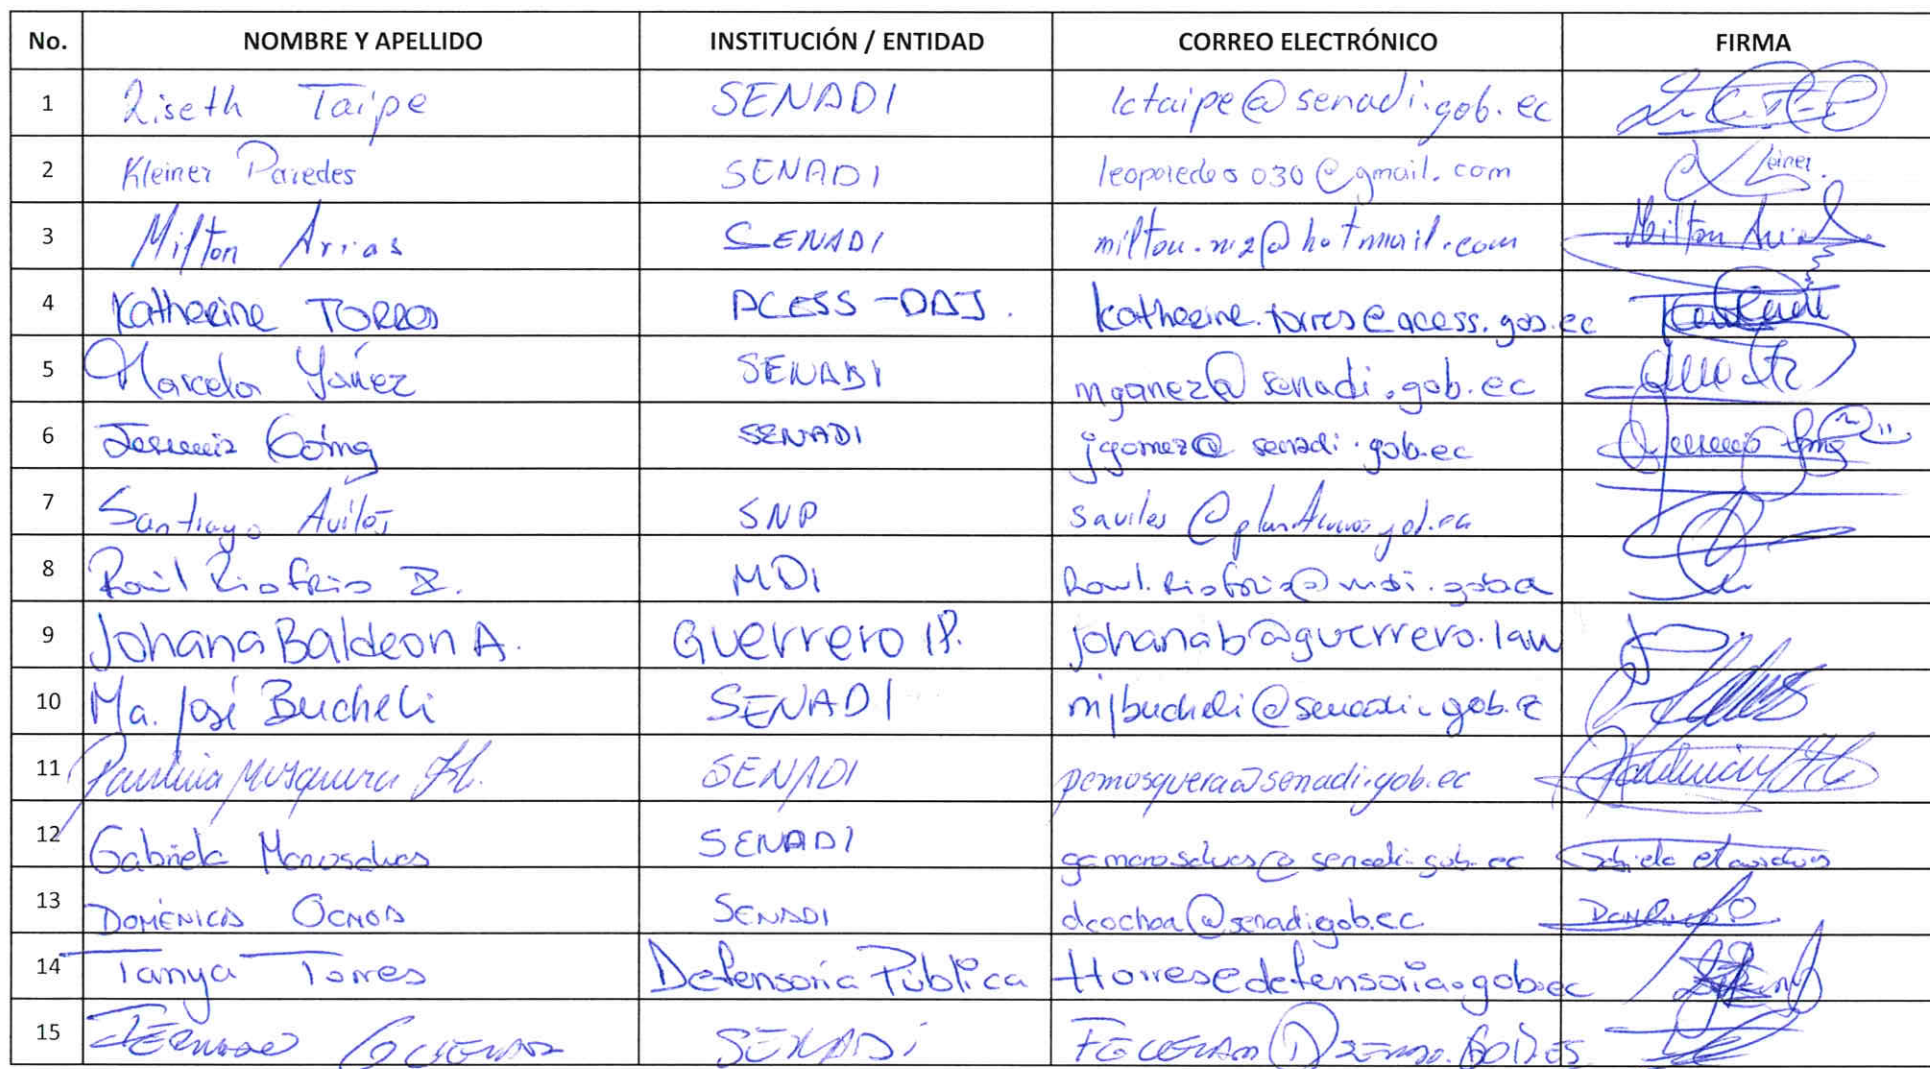 No. NOMBRE Y APELLIDO INSTITUCIÓN / ENTIDAD CORREO ELECTRÓNICO FIRMA
1 Liseth Taipe SENADI lctaipe@senadi.gob.ec
2 Kleiner Paredes SENADI leoparedes030@gmail.com Kleiner.
3 Milton Arias SENADI milton.m2@hotmail.com Milton Arias
4 Katherine TORRES ACESS-DAJ. katherine.torres@acess.gob.ec
5 Marcelo Yánez SENADI myanez@senadi.gob.ec
6 Gómez SENADI jgomez@senadi.gob.ec
7 Santiago Avilés SNP
8 Raúl Riofrio Z. MDI
9 Johana Baldeon A. Guerrero IP. johanab@guerrero.law
10 Ma. José Bucheli SENADI mjbucheli@senadi.gob.ec
11 Paulina Mosquera SENADI pcmosquera@senadi.gob.ec
12 Gabriela SENADI
13 DOMÉNICA OCHOA SENADI dcochoa@senadi.gob.ec
14 Tanya Torres Defensoría Pública ttorres@defensoria.gob.ec
15 SENADI